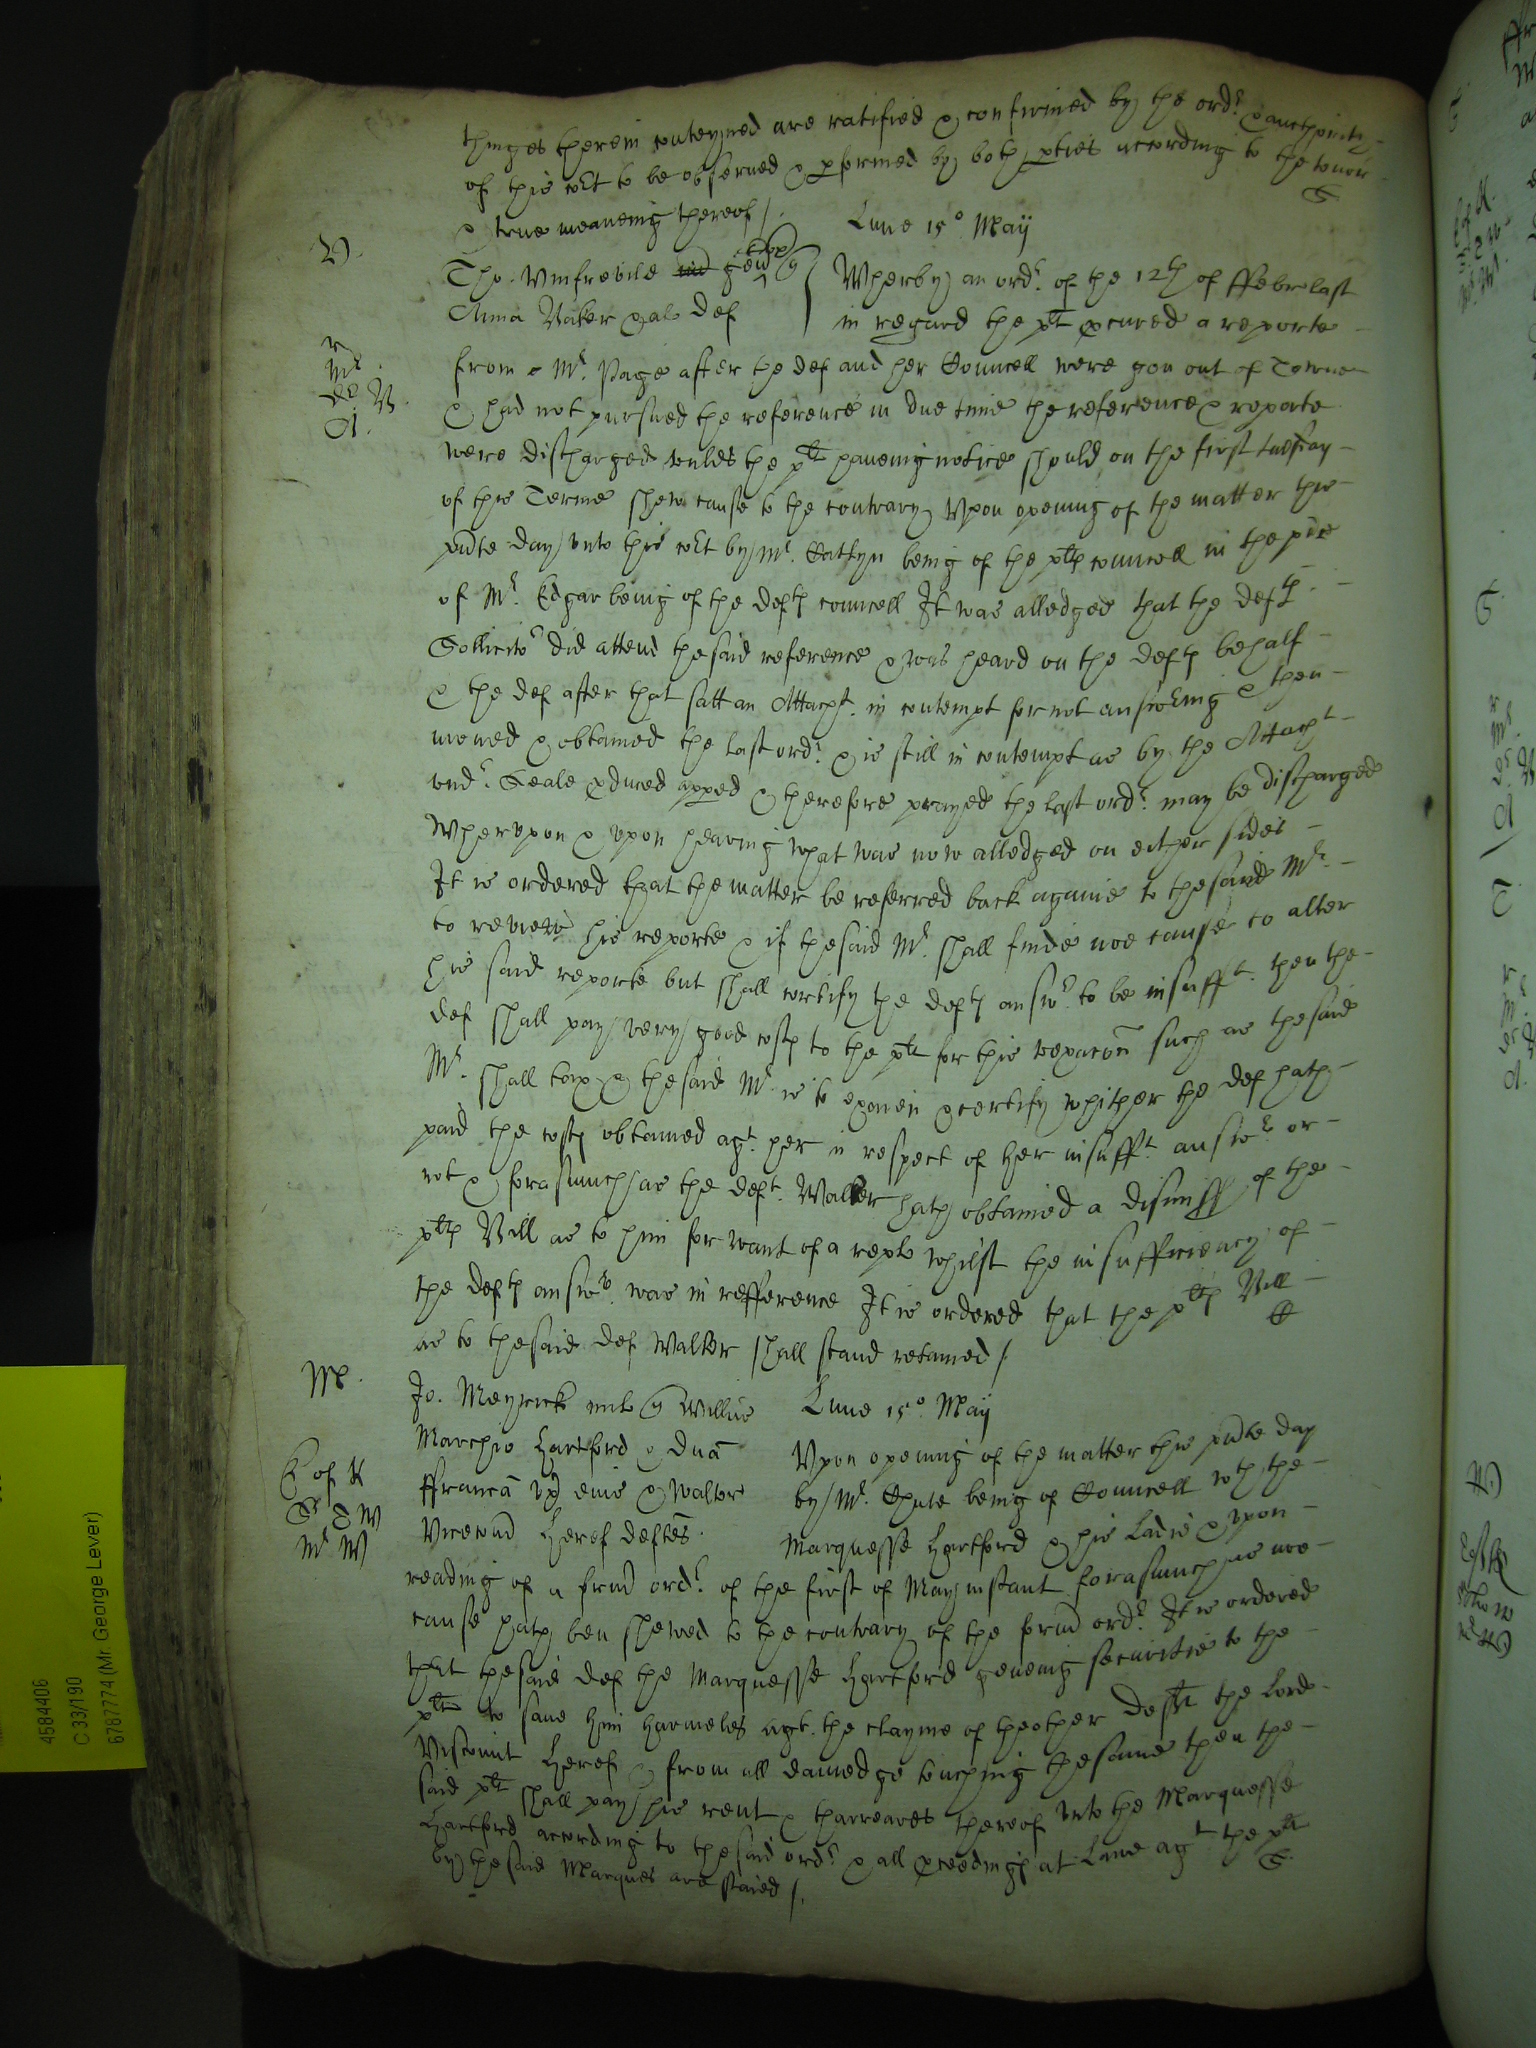 thinges therein conteyned are ratified & confirmed by the ordr & aucthority
of this Cort to be observed & pformed by both pties according to the tenor
& true meaneing thereof /.
S
V.
Lune 15o Maij
Tho. Vmfrevile gen
Anna Baker & al def
Wherby an ordr. of the 12th of ffebr last
in regard the plt pcured a reporte
r
Mr.
B.
A.
from Mr. Page after the def and her Councell were gon out of Towne
& had not pursued the reference in due time the reference & reporte
were discharged vnles the plt haueing notice should on the first tuesday
of this Terme shew cause to the contrary Vpon opening of the matter this
pnte day vnto this Cort by Mr. Catlyn being of the plts councell in the pnce
of Mr. Edgar being of the defts councell It was alledged that the defts
Sollicitr did attend the said reference & was heard on the defts behalf
& the def after that satt an Attachmt. in contempt for not answering & then
moued & obtained the last ordr. & is still in contempt as by the Attachmt
vndr. Seale pduced apped & therefore prayed the last ordr. may be discharged
Whervpon & vpon hearing what was now alledged on either sides
It is ordered that the matter be referred back againe to the said Mr.
to review his reporte & if the said Mr. shall finde noe cause to alter
his said reporte but shall certify the defts answr. to be insufft. then the
def shall pay very good costs to the plt for this vexacon such as the said
Mr. shall tax & the said Mr. is to examin & certify whither the def hath
paid the costs obtained agt. her in respect of her insufft. answr. or
not & forasmuch as the deft. Walter hath obtained a dismiss of the
plts Bill as to him for want of a repl whilst the insufficiency of
the defts answr. was in refference It is ordered that the plts Bill
as to the said def Walter shall stand retained /.
M.
Jo. Meyrick mil Willus
Marchio Hartford & dna
ffranca vx eius & Walter
Vicecom Heref deftes.
Lune 15o. Maij
E of K
Sr T W
Mr W
Vpon opening of the matter this pnte day
by Mr. Chute being of Councell wth the
Marquesse Hartford & his Ladie & vpon
reading of a form ordr. of the first of May instant forasmuch as noe
cause hath ben shewed to the contrary of the form ordr. It is ordered
that the said def the Marquesse Hartford geueing securitie to the
plt to saue him harmeles agt. the clayme of the other deft the Lord
Viscount Heref & from all damedge touching the same then the
said plt shall pay his rent & tharreares thereof vnto the Marquesse
Hartford according to the said ordr. & all pceedings at Lawe agt the plt
by the said Marques are staied /.
S.
4584406
C 33/190
6787774 (Mr. George Lever)